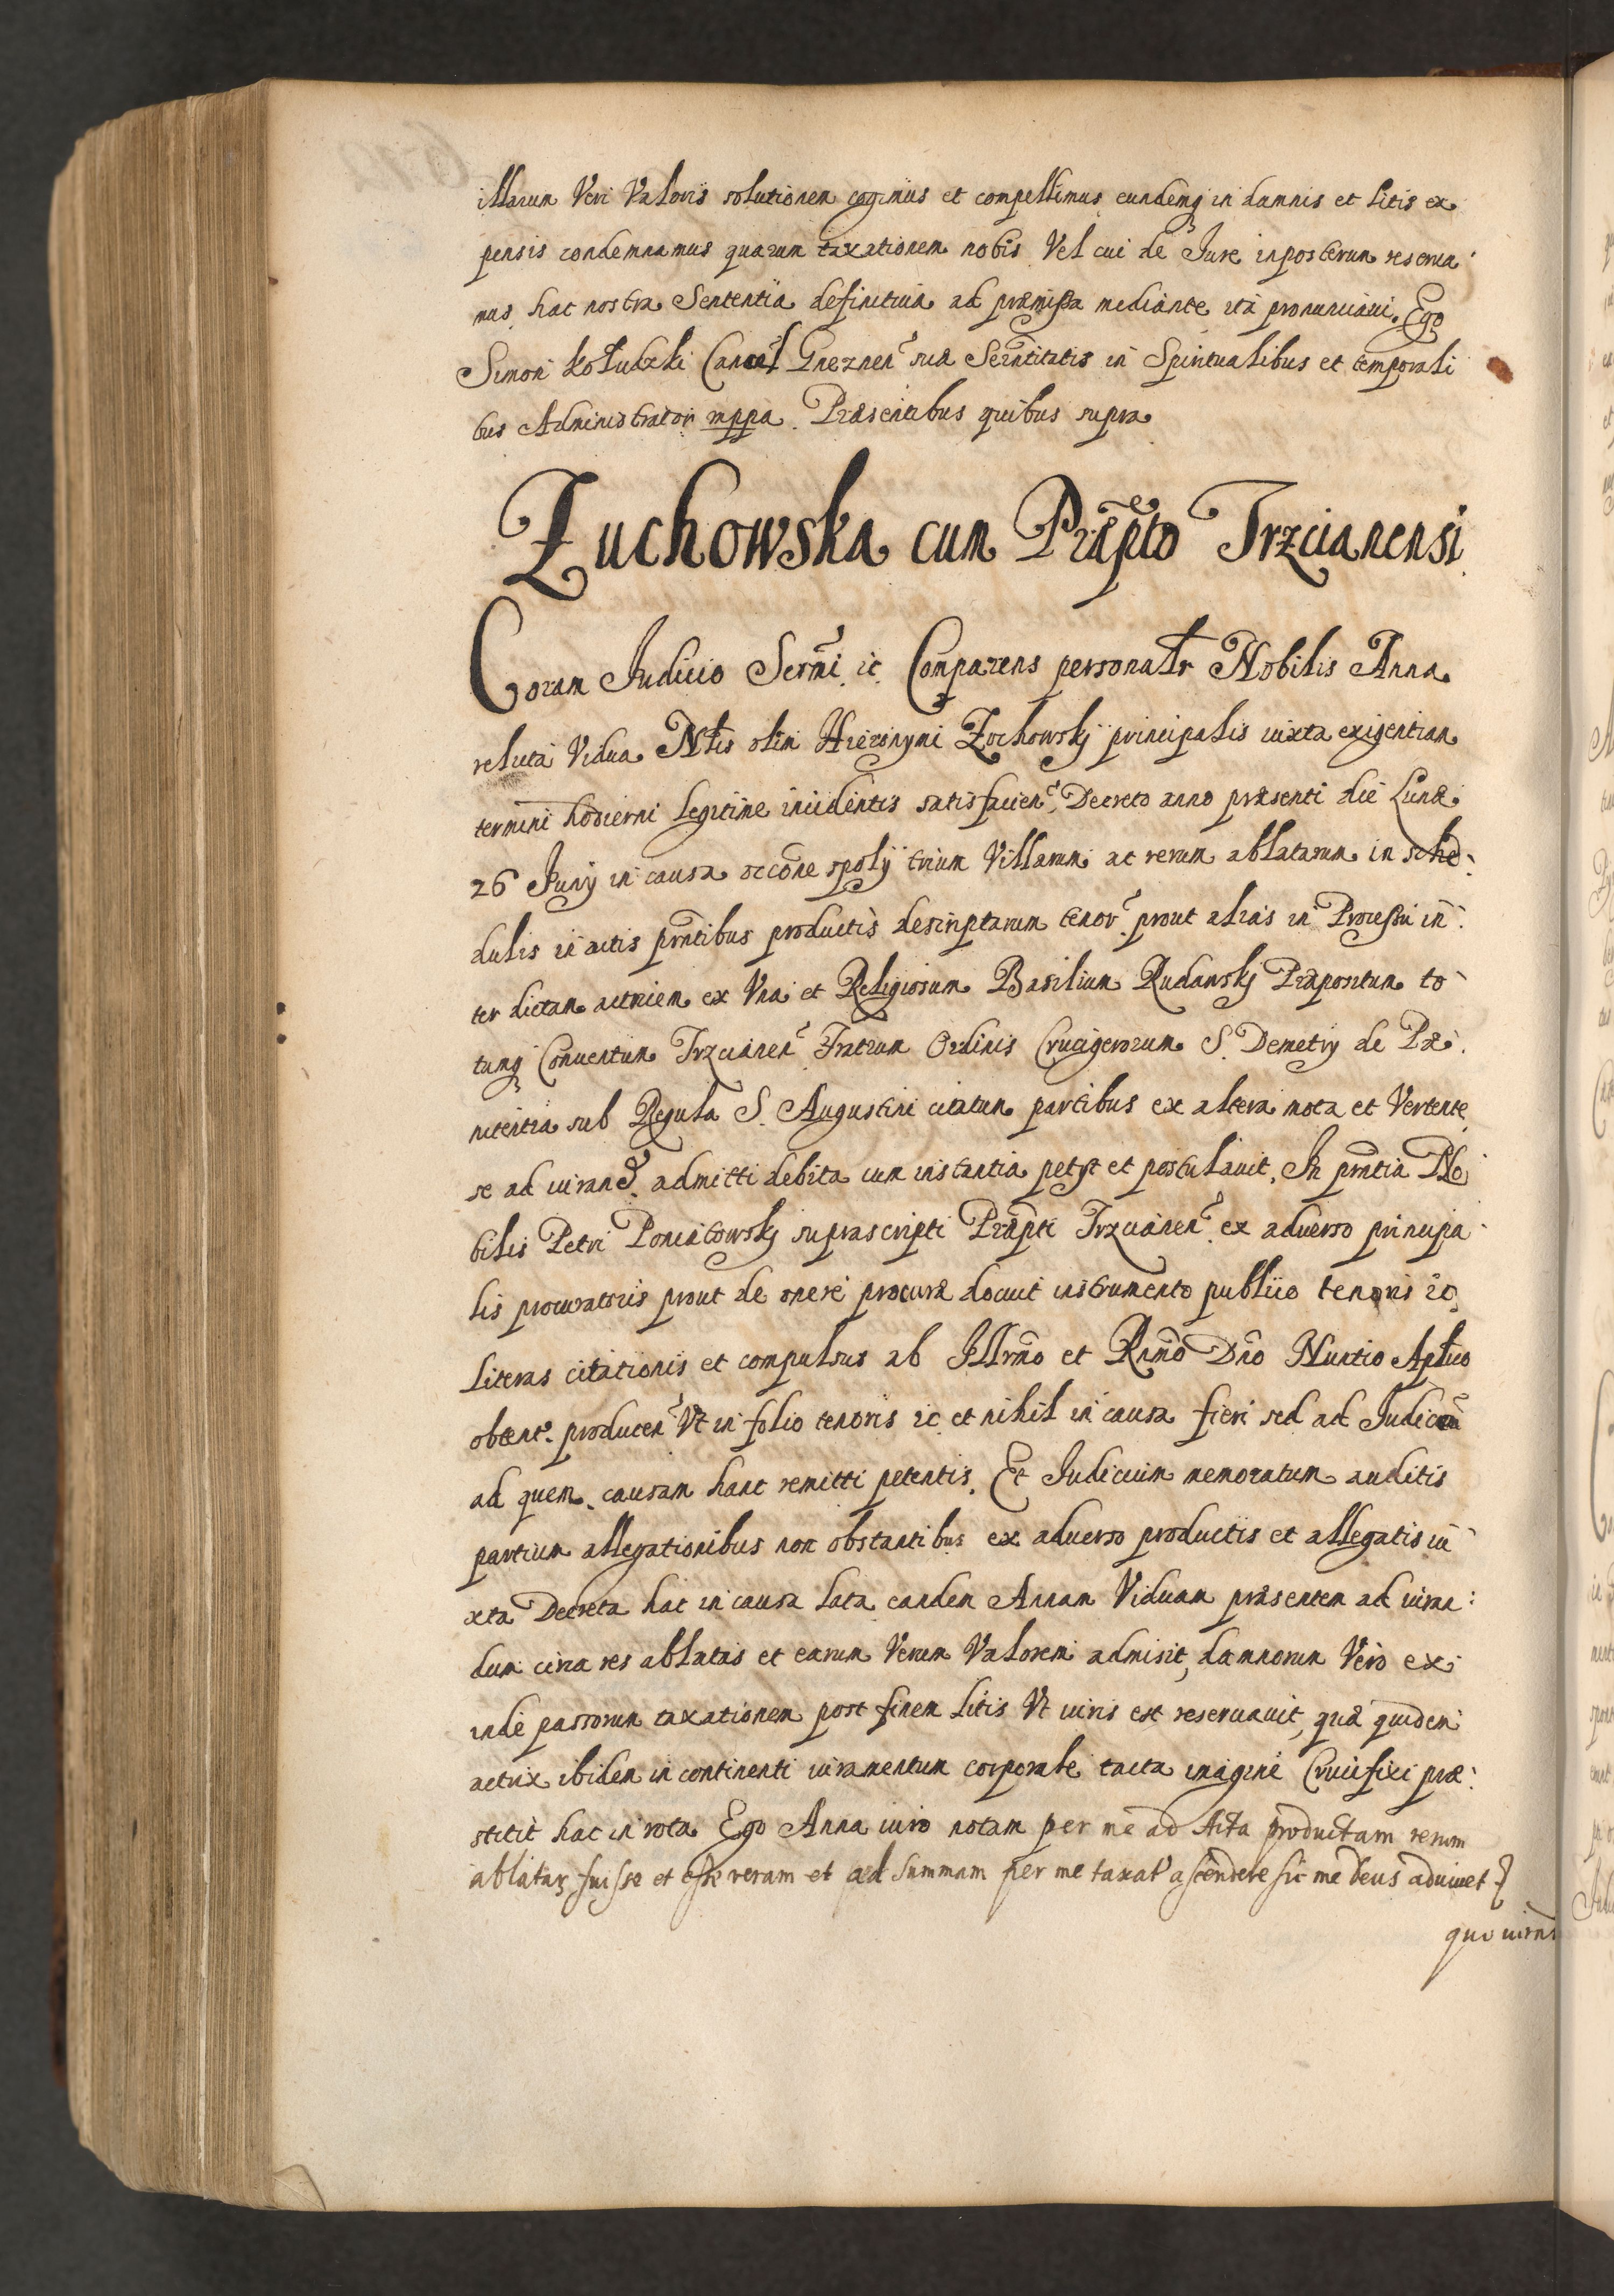 illarum Veri Valoris solutionem cogimus et compellimus eundemq in damnis et litis ex
pensis condemnamus quarum taxationem nobis Vel cui de Jure inposterum reserua
mus hac nostra Sententia definitiua ad præmissa mediante ita pronunciaui. Ego
Simon Kołudzki Canc Gneznen suæ Serntitatis in Spiritualibus et temporali
bus Administrator mppa. Præsentibus quibus supra
Zuchowska cum Præpto Trzcianensi
Coram Judicio Sermi ic Comparens personalr Nobilis Anna
relicta Vidua Nlis olim Hieronymi Zochowskj principalis iuxta exigentiam
termini hodierni legitime incidentis satisfacien Decreto anno præsenti die Lunæ
26 Junij in causa occone spolij trium Villarum ac rerum ablatarum in sche
dulis ic actis prntibus productis descriptarum tenor prout alias in Processu in
ter dictam actricem ex Vna et Religiosum Basilium Rudawskj Præpositum to
tumq Conuentum Trzcianen Fratrum Ordinis Crucigerorum S. Demetrij de Pæ
nitentia sub Regula S. Augustini citatum partibus ex altera mota et Vertente
se ad iurand admitti debita cum instantia petyt et postulauit. In prntia No
bilis Petri Poniatowskj suprascripti Præpti Trzcianen ex aduerso principa
lis procuratoris prout de onere procuræ docuit instrumento publico tenoris ic
literas citationis et compulsus ab Illrmo et Rnmo Dno Nuntio Aplico
obtent. producen Vt in folio tenoris ic et nihil in causa fieri sed ad Judicem
ad quem causam hanc remitti petentis. Et Judicium memoratum auditis
partium allegationibus non obstantibus ex aduerso productis et allegatis iu
xta Decreta hac in causa lata eandem Annam Viduam præsentem ad iuran
dum circa res ablatas et earum Verum Valorem admisit, damnorum Vero ex
inde passorum taxationem post finem litis Vt iuris est reseruauit, quæ quidem
actrix ibidem in continenti iuramentum corporale tacta imagine Crucifixi præ
stitit hac in rota Ego Anna iuro notam per me ad Acta productam rerum
ablatar fuisse et esse veram et ad summam per me taxat ascendere sic me Deus adiuuet
quo iuram